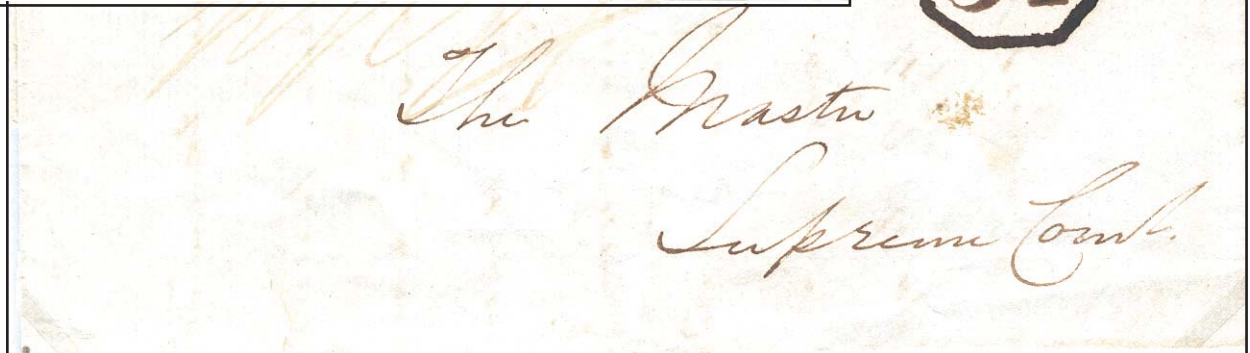 The Master
Supreme Court.